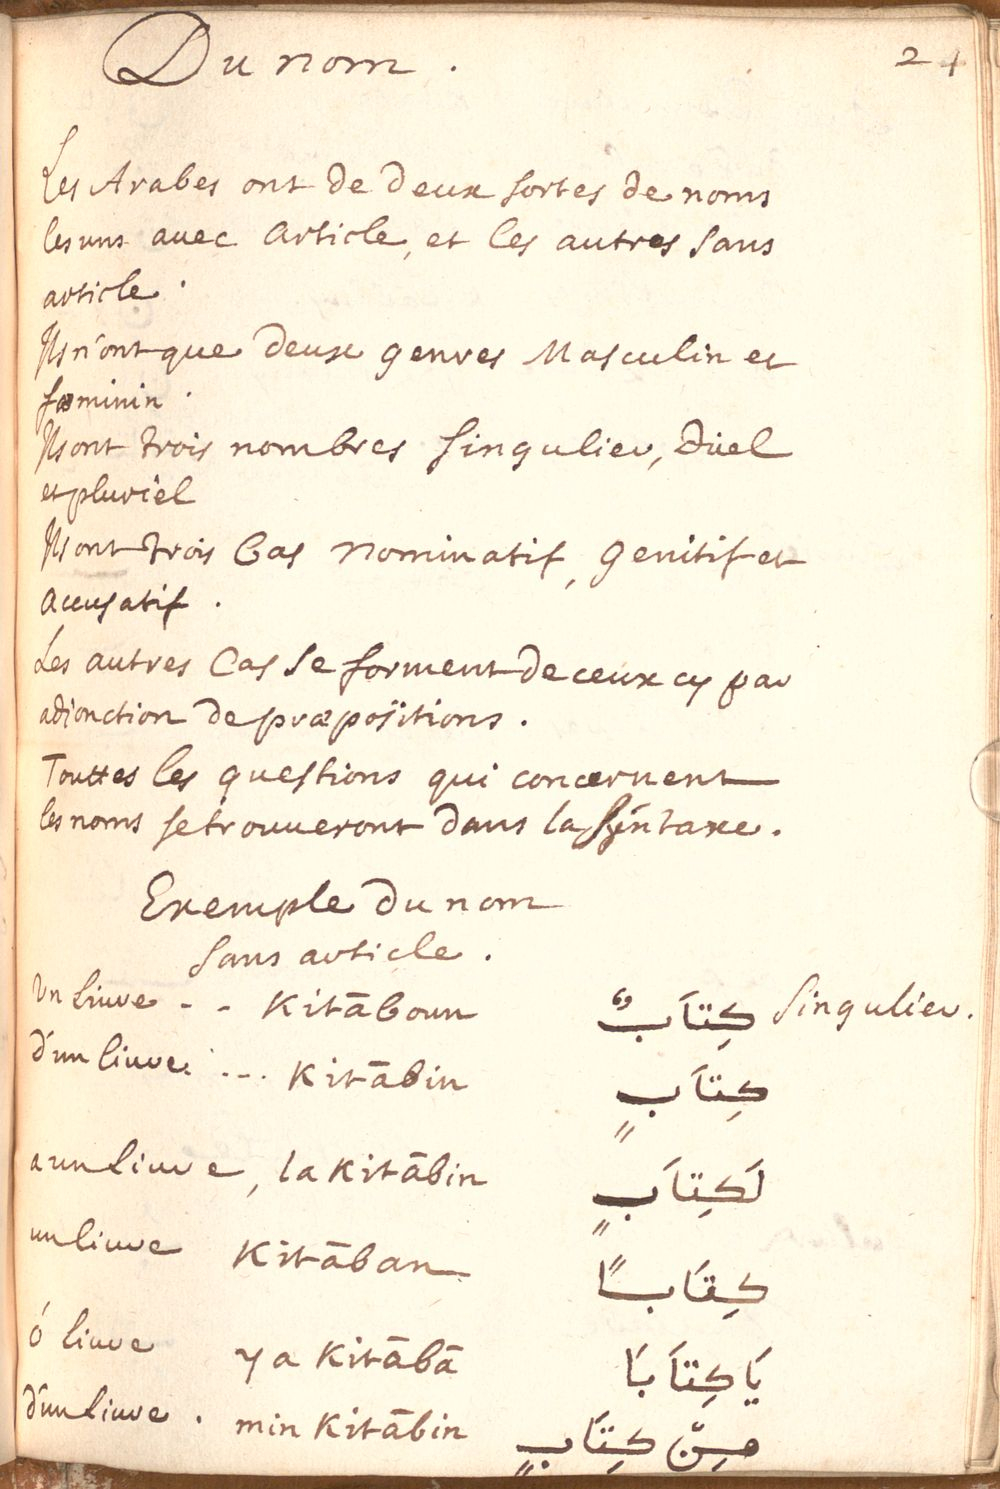 Du nom. 24
Les Arabes ont de deux sortes de noms
les uns auec article, et les autres sans
article.
Ils n'ont que deux genres Masculin et
fœminin.
Ils ont trois nombres singulier, Düel
et pluriel
Ils ont trois Cas nominatif, genitif et
accusatif.
Les autres Cas se forment de ceux cy par
adionction de præpositions.
Touttes les questions qui concernent
les noms se trouueront dans la Syntaxe.
Exemple du nom
sans article.
Vn liure - - Kitāboun كِتَابٌ singulier.
d'un liure. --- Kitābin كِتَابٍ
a un liure, la Kitābin لَكِتَابٍ
un liure Kitāban كِتَاباً
ó liure ya Kitābā يَا كِتَابَا
d'un liure. min Kitābin مِنْ كِتَابٍ